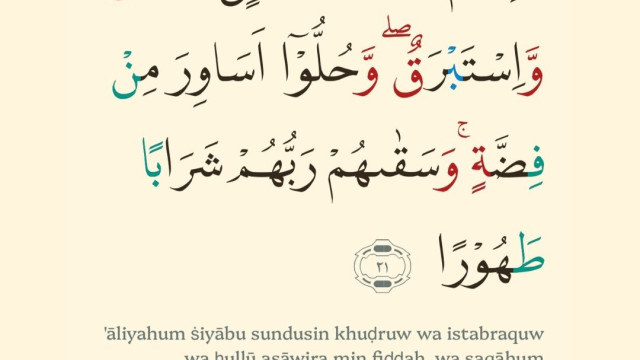 وَّاِسْتَبْرَقٌۖ وَّحُلُّوْٓا اَسَاوِرَ مِنْ
فِضَّةٍۚ وَسَقٰىهُمْ رَبُّهُمْ شَرَابًا
طَهُوْرًا ٢١
'āliyahum ṡiyābu sundusin khuḍruw wa istabraquw
wa ḥullū asāwira min fiḍḍah, wa saqāhum